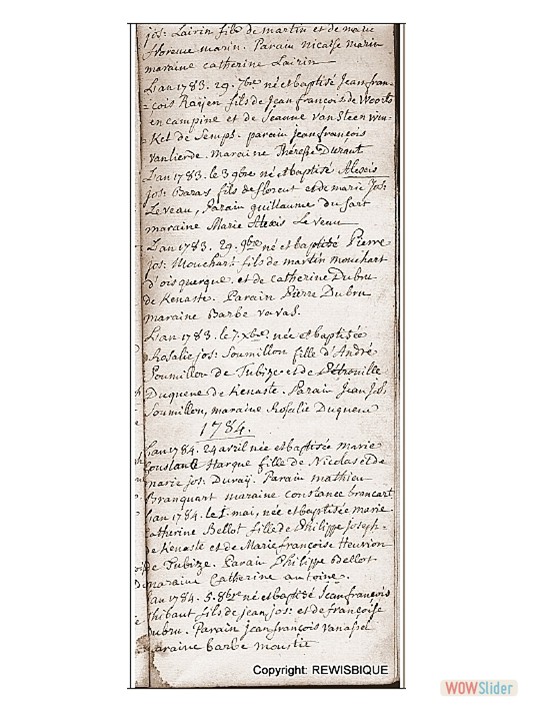 jos: Lairin fils de martin et de marie
florence marin. Parain nicaise marin
maraine catherine Lairin
L'an 1783. 29. 7bre né et baptisé Jean fran-
=çois fils de Jean francois de Woorts
en campine et de Jeanne van Steen win-
=kel de Temps. parain jean françois
vanlierde. maraine Thérèse Duraut
L'an 1783. le 3 9bre né et baptisé Alexis
jos: Baras fils de florent et de marie Jos:
Leveau, Parain guillaume du fart
maraine Marie Alexis Leveau
L'an 1783. 29. 9bre né et baptisé Pierre
jos: Mouchart fils de martin mouchart
d'oisquerque. et de catherine Dubru
de Kenaste. Parain Pierre Dubru
maraine Barbe vavas.
L'an 1783. le 7. xbre. née et baptisée
Rosalie jos: Soumillon fille d'André
Soumillon de Tubize et de Pétronille
Duquene de Kenaste. Parain Jean Jos:
Soumillon, maraine Rosalie Duquene
1784.
L'an 1784. 24 avril née et baptisée marie
Constante Harque fille de Nicolas et de
marie jos: Duraÿ. Parain mathieu
Branquart maraine constance brancart
L'an 1784. le 1. mai, née et baptisée marie
catherine Bellot fille de Philippe Joseph
de Kenaste et de Marie françoise Heuvion
de Tubize. Parain Philippe Bellot
maraine Catherine antoine.
L'an 1784. 5. 8bre né et baptisé Jean françois
Thibaut fils de jean jos: et de françoise
Dubru. Parain jean françois
maraine barbe moustie
Copyright: REWISBIQUE
WOWSlider